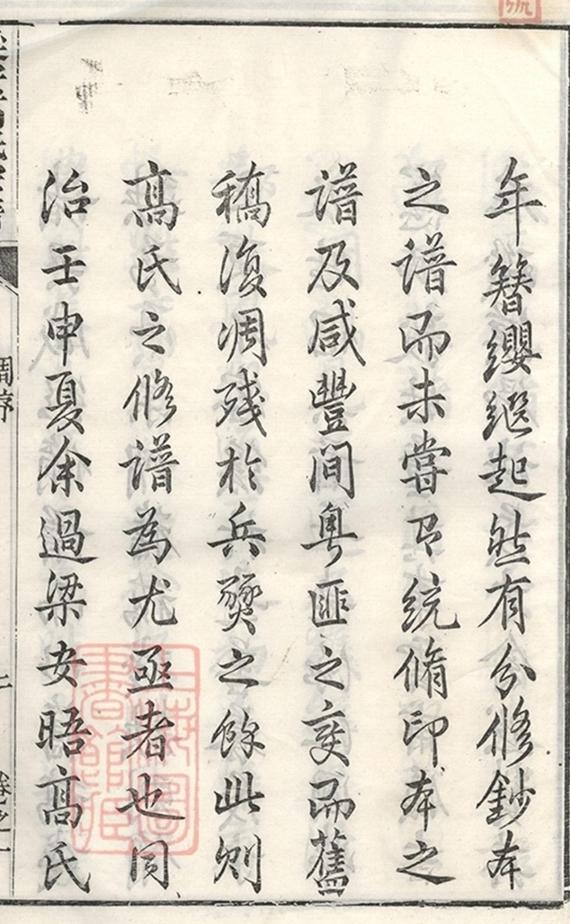 年簪纓繼起然有分修鈔本
之譜而未嘗有統脩印本之
譜及咸豐间粤匪之变而舊
稿復凋残於兵燹之餘此则
髙氏之修譜為尤亟者也同
治壬申夏余過梁安晤髙氏
周序